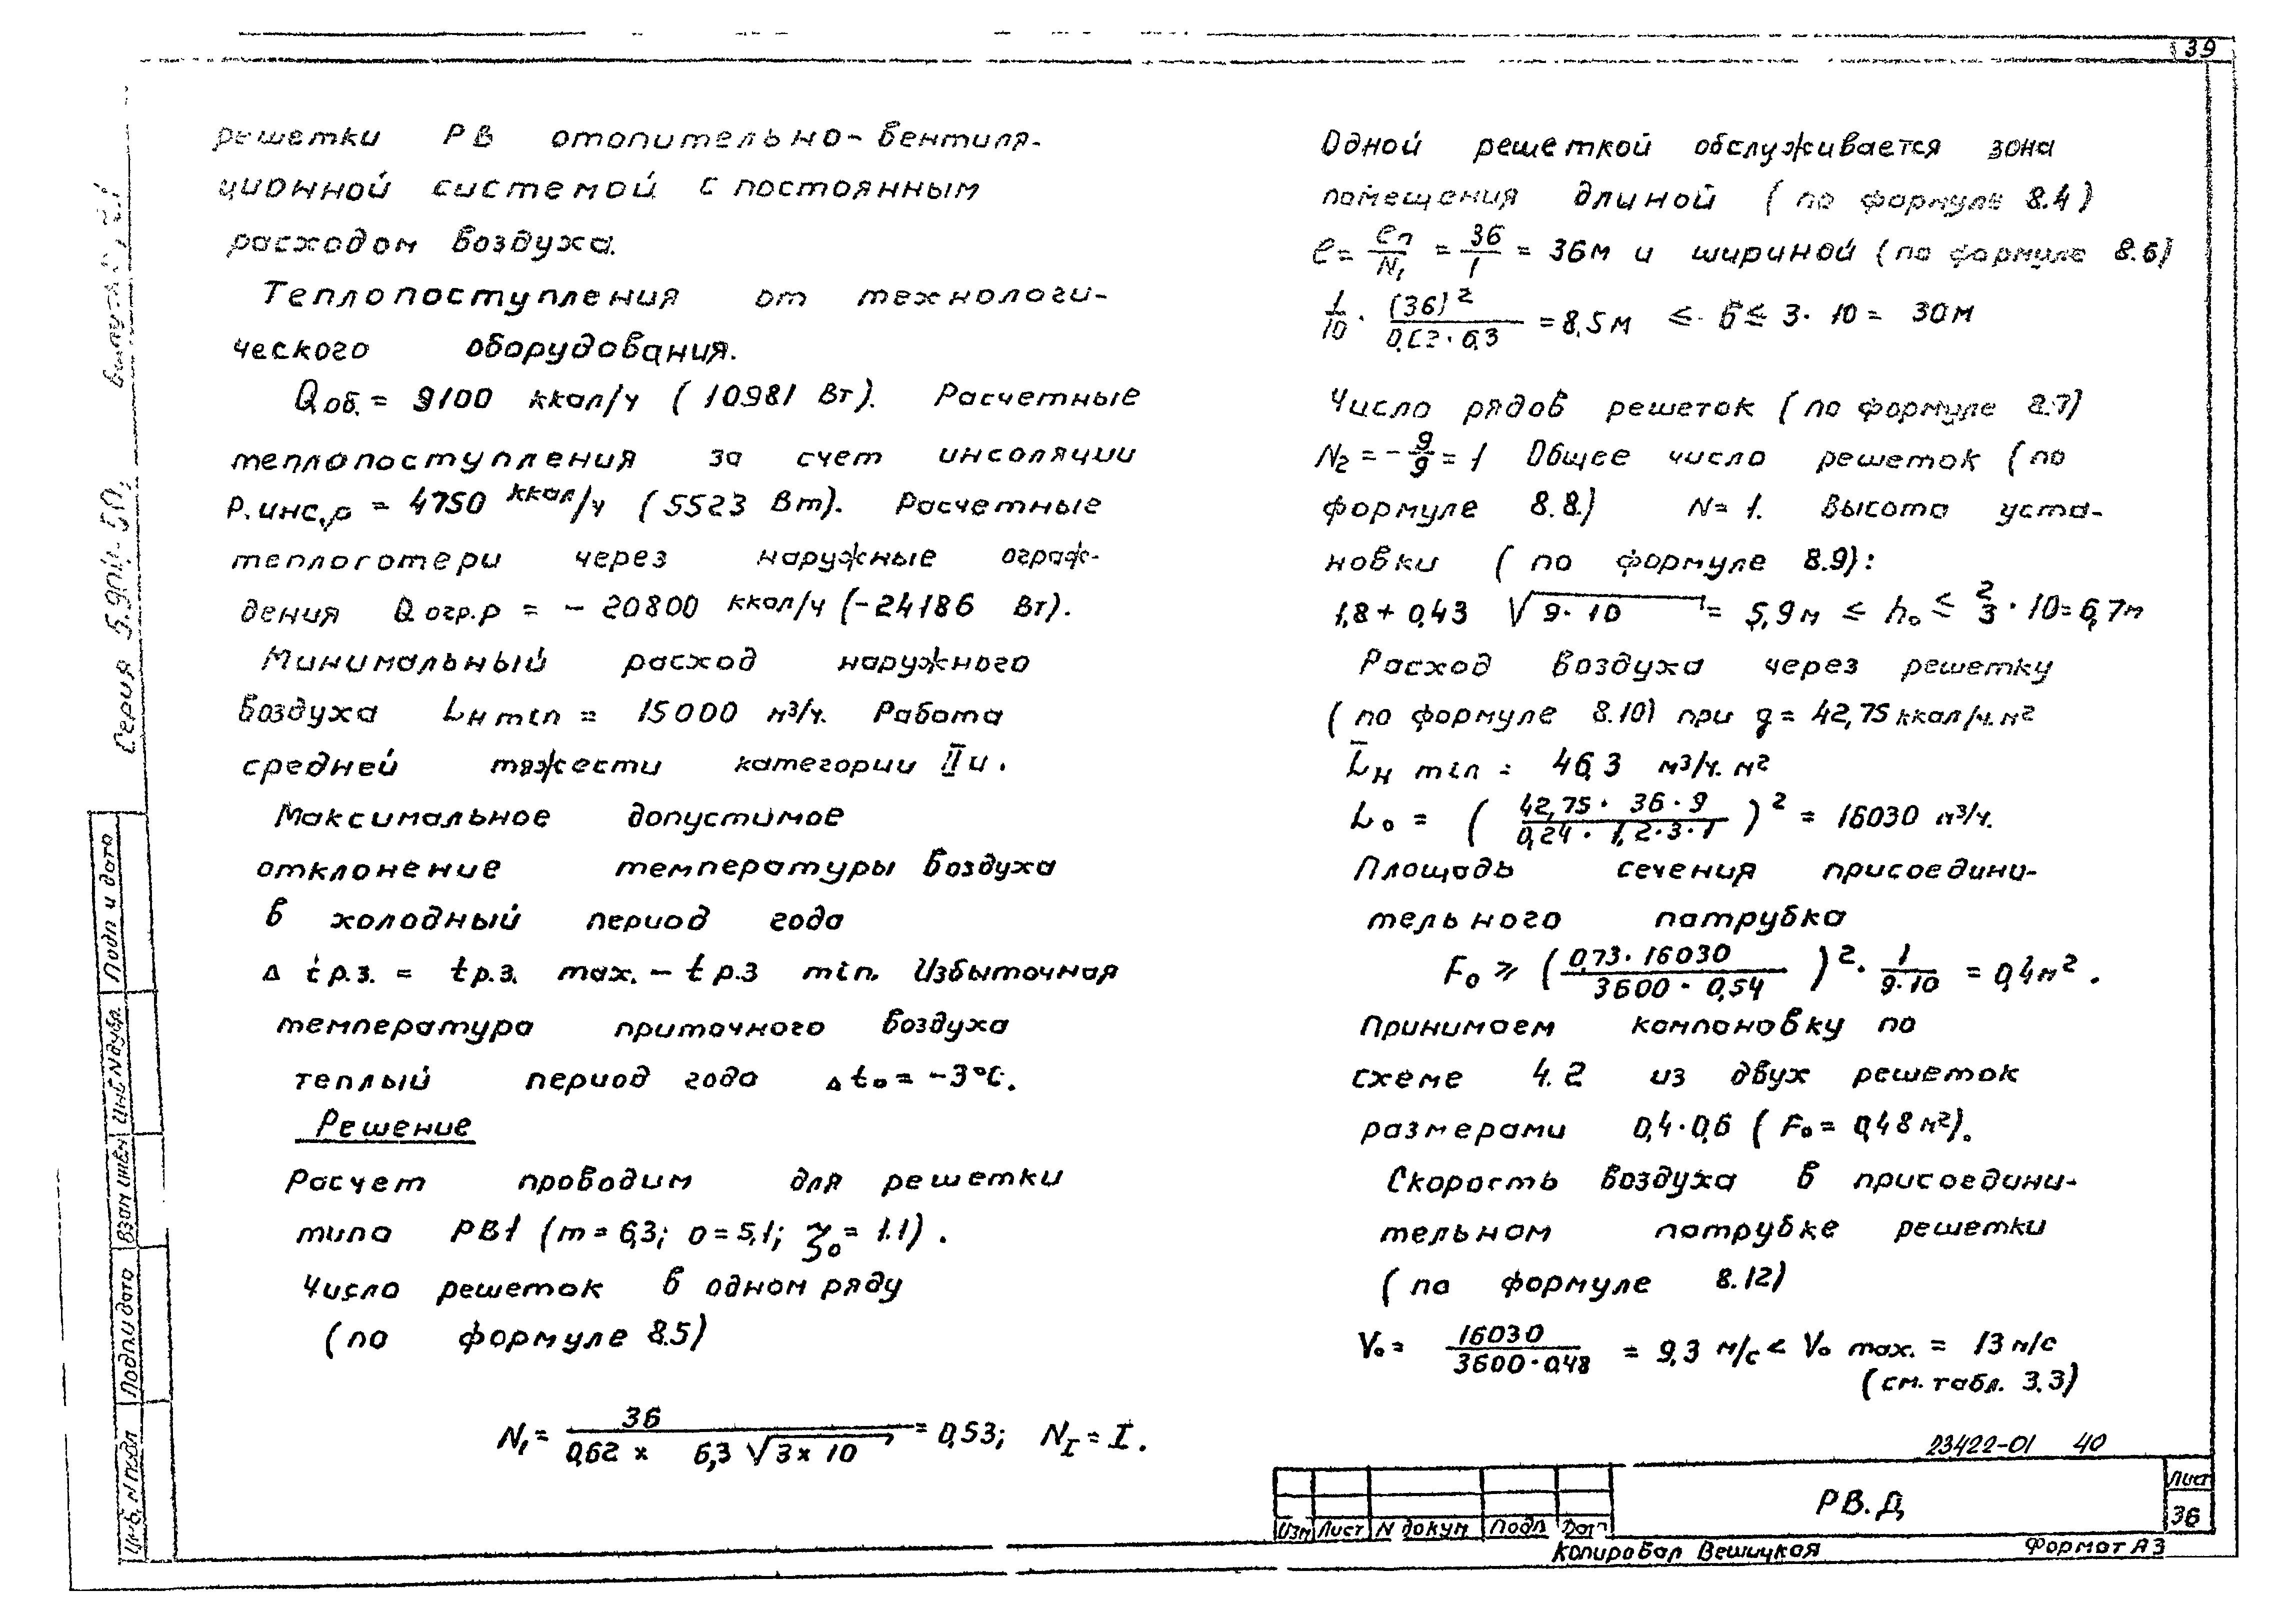 39
решетки РВ отопительно-вентиля-
ционной системой с постоянным
расходом воздуха.
Теплопоступления от технологи-
ческого оборудования.
Qоб. = 9100 ккал/ч (10981 Вт). Расчетные
теплопоступления за счет инсоляции
Р.инс.р = 4750 ккал/ч (5523 Вт). Расчетные
теплопотери через наружные ограж-
дения Qогр.р = - 20800 ккал/ч (-24186 Вт).
Минимальный расход наружного
воздуха Lн min = 15000 м³/ч. Работа
средней тяжести категории IIи.
Максимальное допустимое
отклонение температуры воздуха
в холодный период года
Δ tр.з. = tр.з. max. - tр.з min. Избыточная
температура приточного воздуха
теплый период года Δt₀ = -3°С.
Решение
Расчет проводим для решетки
типа РВ1 (m = 6,3; n = 5,1; ζ₀ = 1.1).
Число решеток в одном ряду
(по формуле 8.5)
N₁ = 36 / (0,62 х 6,3 √3 х 10) = 0,53; N_I = I.
Одной решеткой обслуживается зона
помещения длиной (по формуле 8.4)
ℓ = ℓп/N₁ = 36/1 = 36м и шириной (по формуле 8.6)
1/10 · (36)²/(0,62 · 6,3) = 8,5м ≤ б ≤ 3 · 10 = 30м
Число рядов решеток (по формуле 8.7)
N₂ = - 9/9 = 1 Общее число решеток (по
формуле 8.8.) N = 1. Высота уста-
новки (по формуле 8.9):
1,8 + 0,43 √9 · 10 = 5,9м ≤ h₀ ≤ 2/3 · 10 = 6,7м
Расход воздуха через решетку
(по формуле 8.10) при g = 42,75 ккал/ч.м²
L̄н min = 46,3 м³/ч. м²
L₀ = (42,75 · 36 · 9 / 0,24 · 1,2 · 3 · 1)² = 16030 м³/ч.
Площадь сечения присоедини-
тельного патрубка
F₀ ⩾ (0,73 · 16030 / 3600 · 0,54)² · 1/(9 · 10) = 0,4м².
Принимаем компоновку по
схеме 4.2 из двух решеток
размерами 0,4 · 0,6 (F₀ = 0,48м²).
Скорость воздуха в присоедини-
тельном патрубке решетки
(по формуле 8.12)
V₀ = 16030 / (3600 · 0,48) = 9,3 м/с < V₀ max. = 13 м/с
(см. табл. 3.3)
23422-01 40
Изм Лист N докум Подп Дат
РВ.Д
Лист
36
Копировал Вешицкая Формат А3
Серия 5.904-50,
Подп и дата
Инв N дубл.
Взам инв N
Подп и дата
Инв. N подл